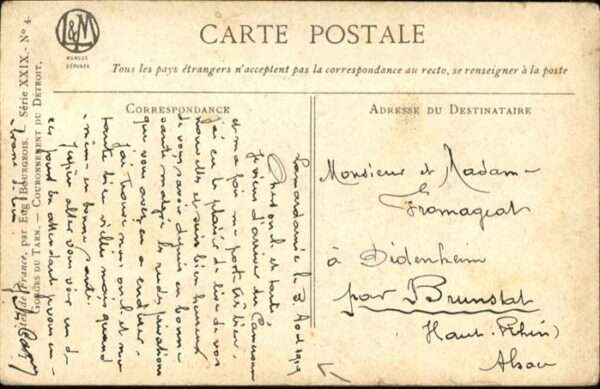 L&M
MARQUE
DÉPOSÉE
CARTE POSTALE
Tous les pays étrangers n'acceptent pas la correspondance au recto, se renseigner à la poste
CORRESPONDANCE
ADRESSE DU DESTINATAIRE
le 3 Aout 1919
Cher oncle et tante
Je viens d'arriver du Cameroun
et ma foi me porte très bien.
J'ai eu le plaisir de lire de vos
nouvelles et suis bien heureux
de vous savoir depuis en bonne
santé malgré les rudes privations
que vous avez eu à endurer.
J'ai trouvé mon oncle et ma
tante bien vieilles mais quand
même en bonne santé.
J'espère aller vous voir un de
ces jours en attendant je vous em-
Monsieur et Madame
Fromageat
à Didenheim
par Brunstat
Haut-Rhin)
Alsace
de France, par Eug. Bourgeois. Série XXIX. - N° 4.
GORGES DU TARN. — COURONNEMENT DU DÉTROIT.